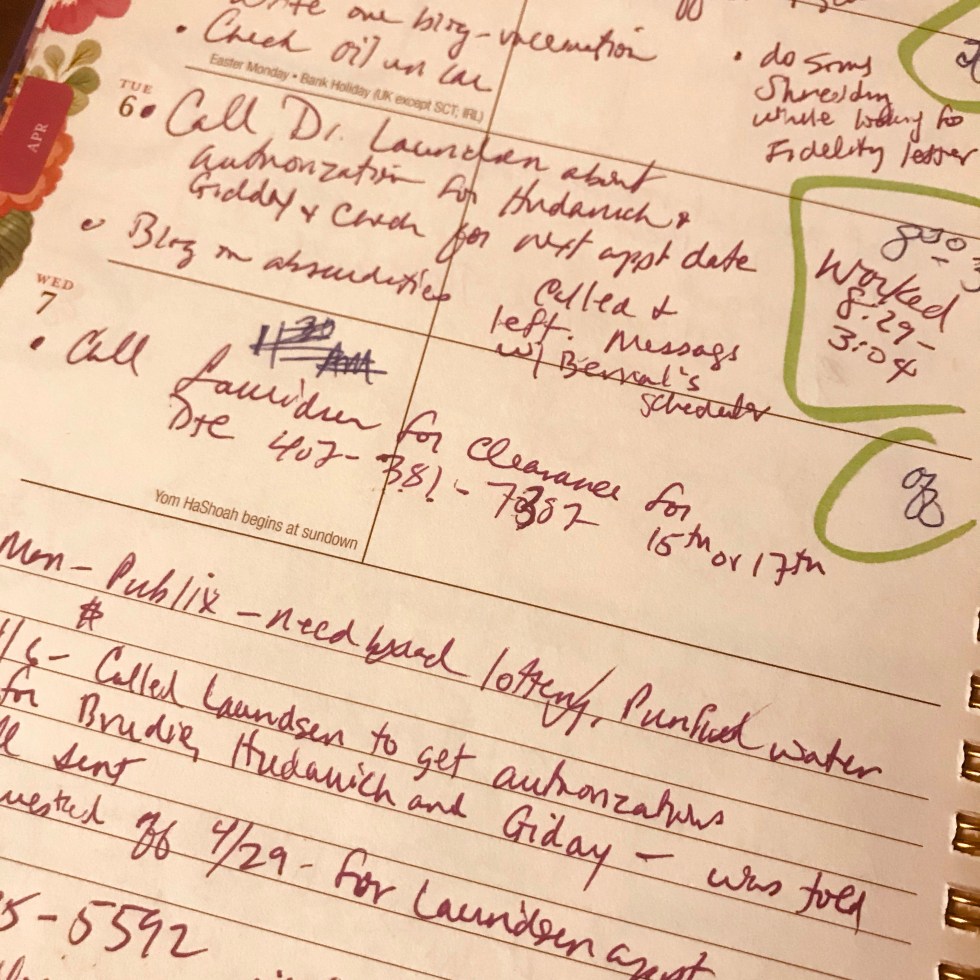 write one blog-vaccination
• Check oil in car
• do some
Shredding
while waiting for
Fidelity letter
Easter Monday • Bank Holiday (UK except SCT, IRL)
APR
TUE
6
• Call Dr. Laundsen about
authorization for Hudanich &
Giddey & check for next appt date
• Blog on absurdities
Called &
left message
w/ Bernal's
scheduler
Worked
8:29-
3:04
WED
7
11:30
AM
• Call Lauridsen for Clearance for
407-381-7387
15th or 17th
off
Yom HaShoah begins at sundown
Mon - Publix - need bread lottery, Purified water
$
/6 - Called Laundsen to get authorizations
for Brudie, Hudanich and Giday - was told
sent
off 4/29 - for Laundsen appt
5-5592